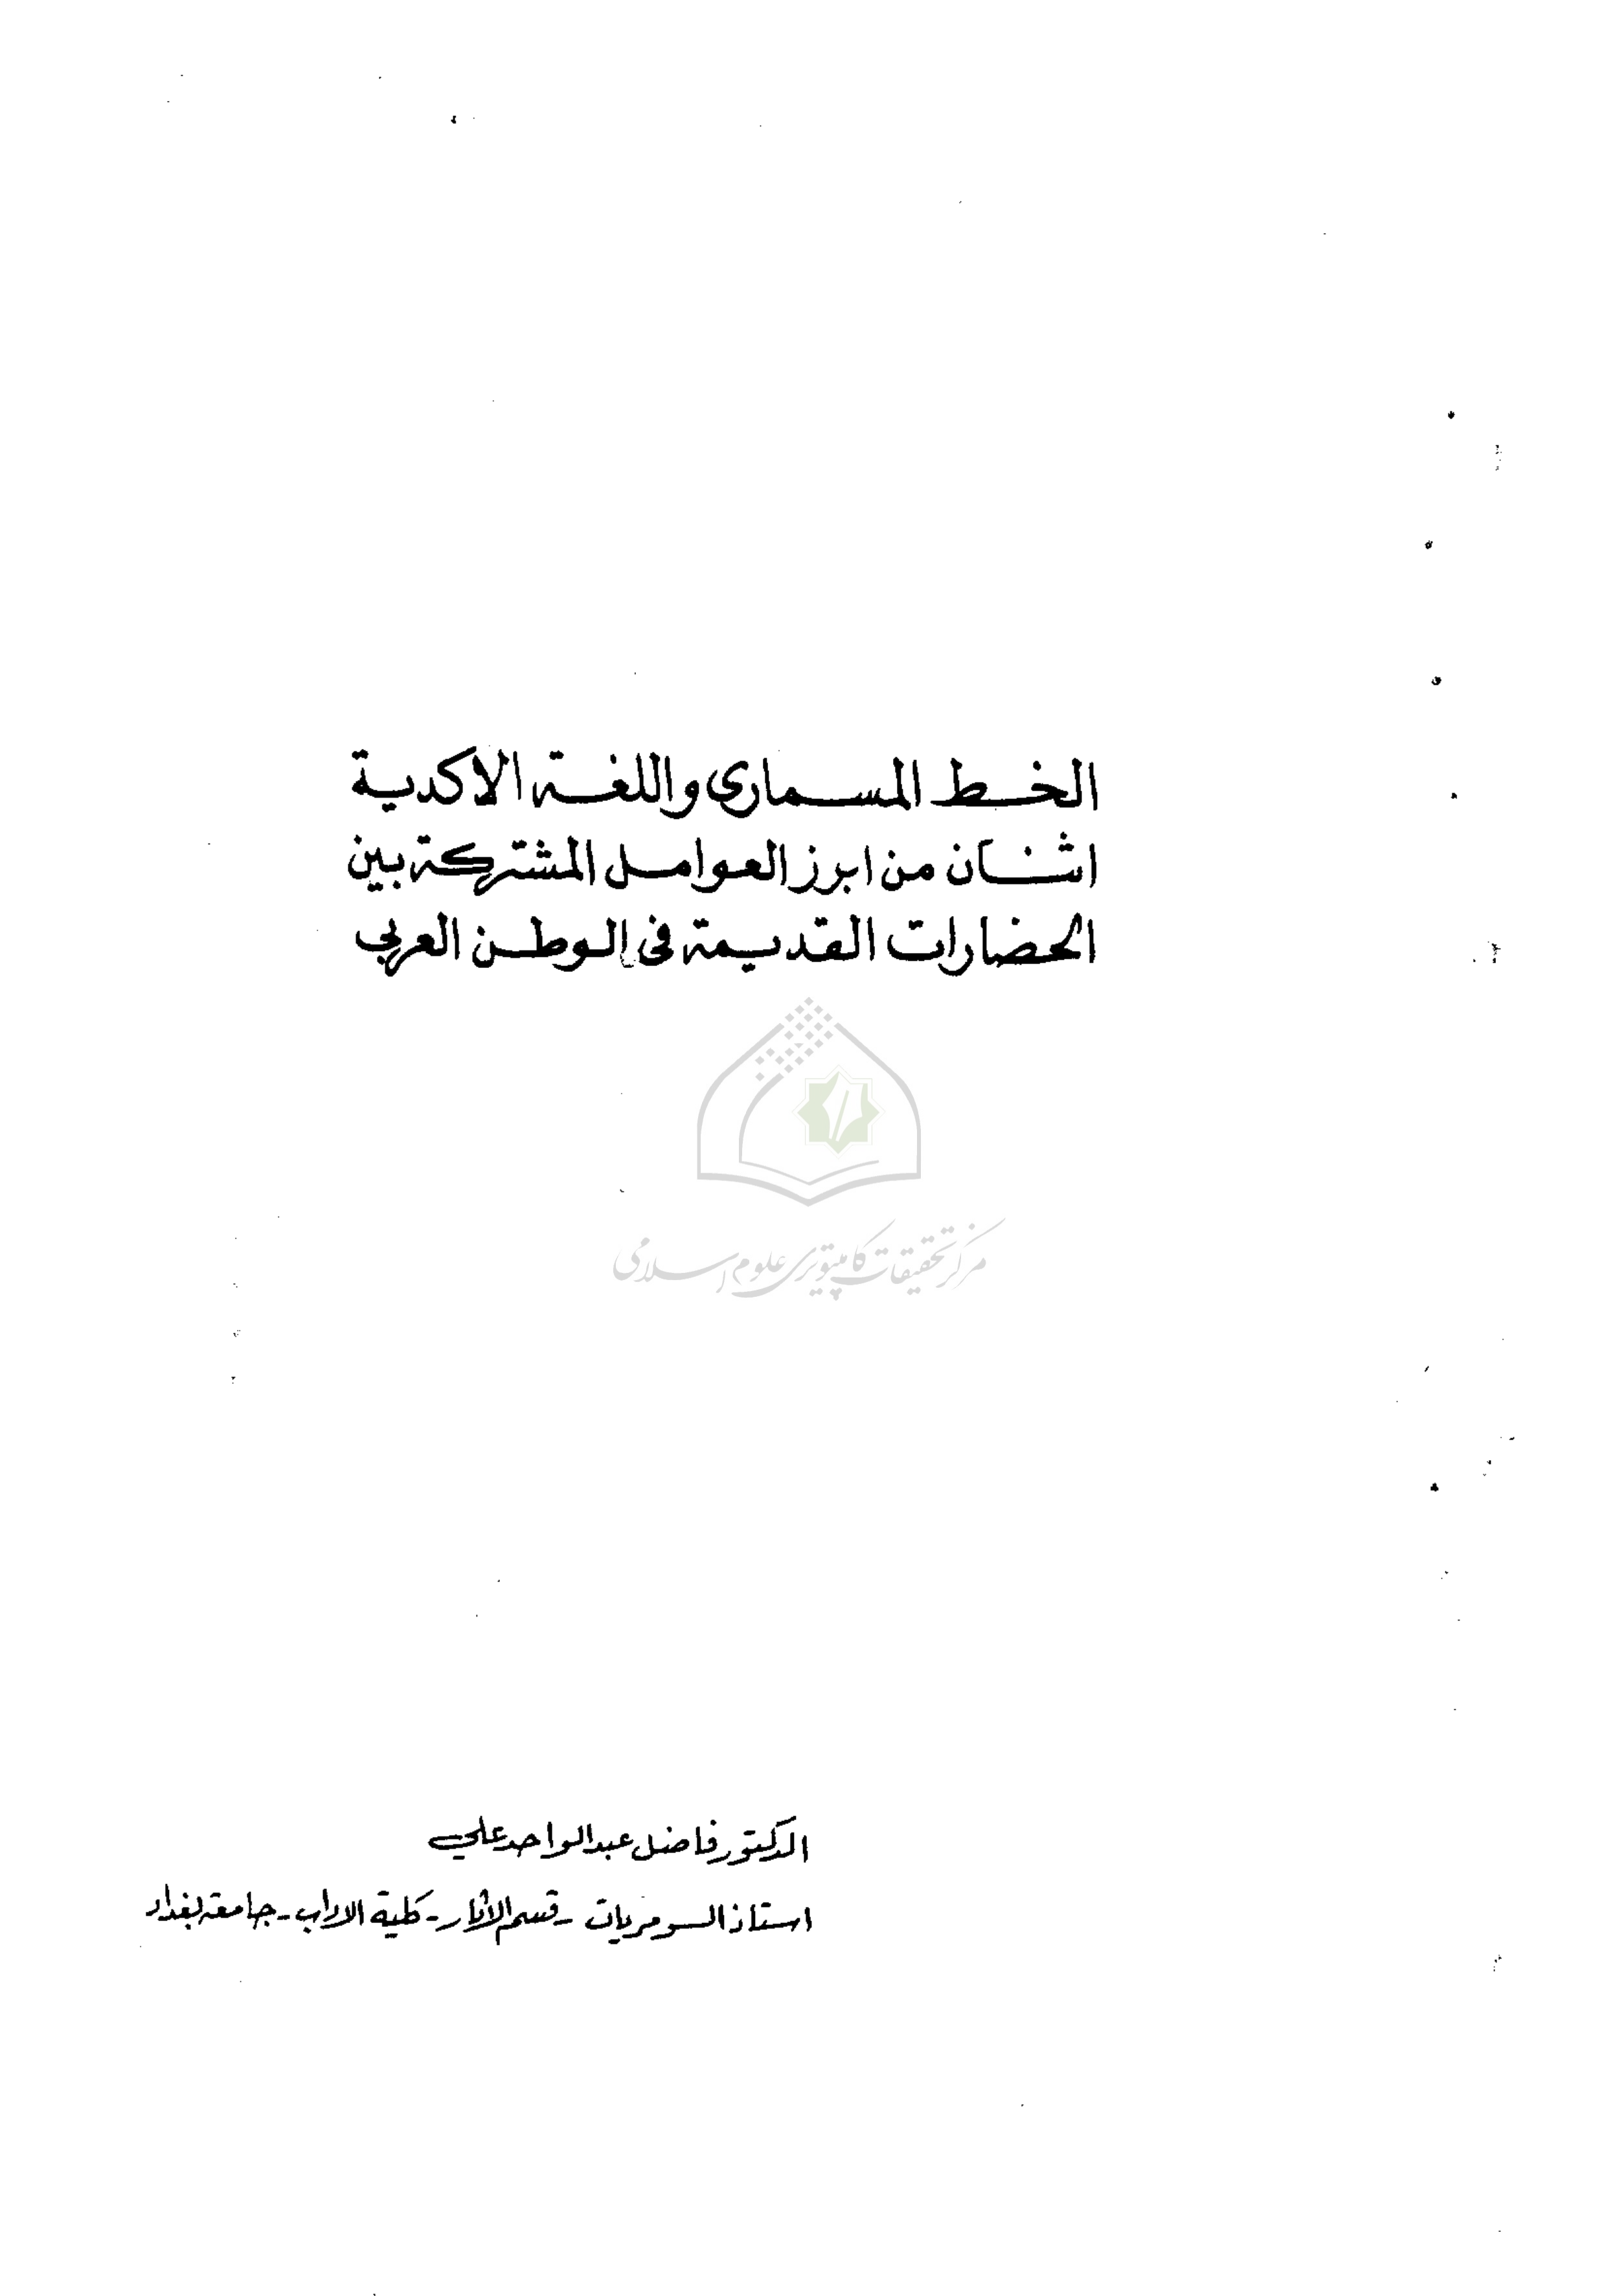 الخط المسماري واللغة الاكدية
اثنان من ابرز العوامل المشتركة بين
الحضارات القديمة في الوطن العربي
مركز تحقيقات كامپيوتري علوم اسلامي
الدكتور فاضل عبدالواحد علي
استاذ السومريات - قسم الاثار - كلية الاداب - جامعة بغداد